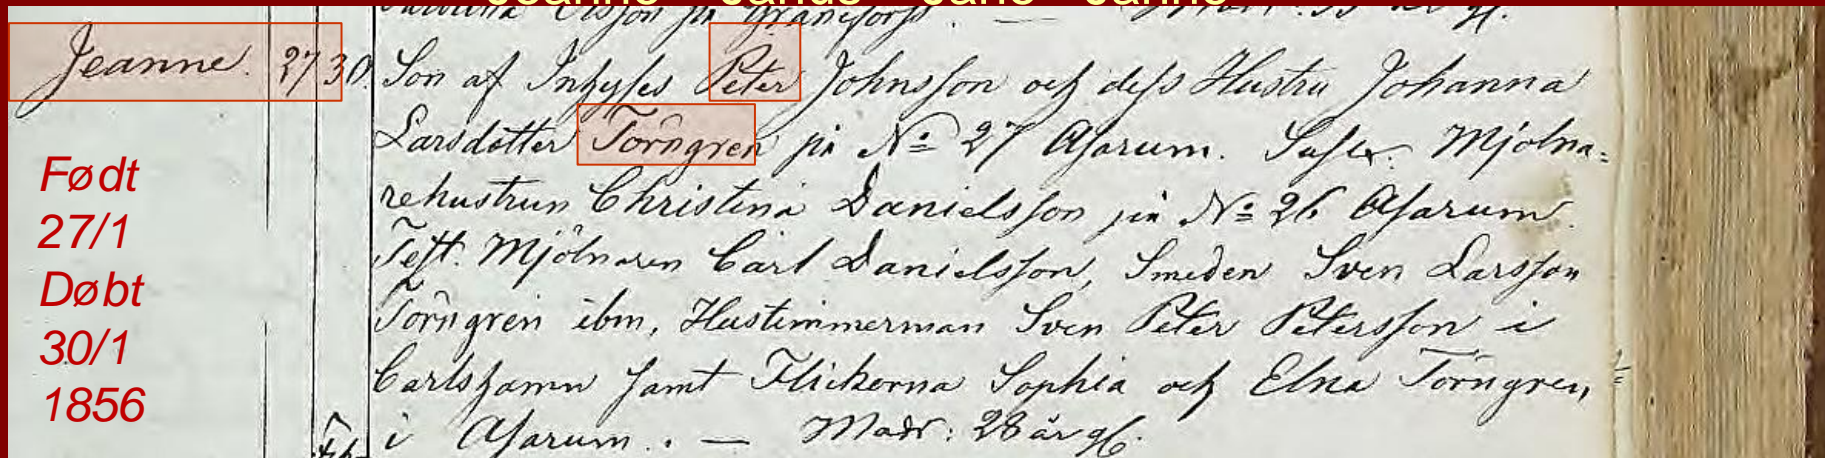 Jeanne - Janus - Jane - Janne
Jeanne. 27 30. Son af Inhyses Peter Johnsson och dess Hustru Johanna
Larsdotter Törngren på No 27 Asarum. Suscr. Mjölna=
rehustrun Christina Danielsson på No 26 Asarum.
Test. Mjölnaren Carl Danielsson, Smeden Sven Larsson
Törngren ibm, Hustimmerman Sven Peter Petersson i
Carlshamn samt Flickorna Sophia och Elna Törngren,
i Asarum. — Modr: 28 år gl.
Født
27/1
Døbt
30/1
1856